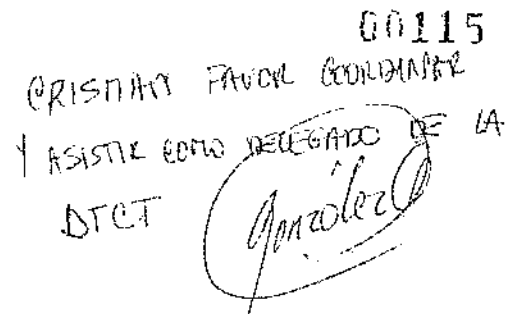 00115
CRISTIAN FAVOR COORDINAR
Y ASISTIR COMO DELEGADO DE LA
DTCT
González